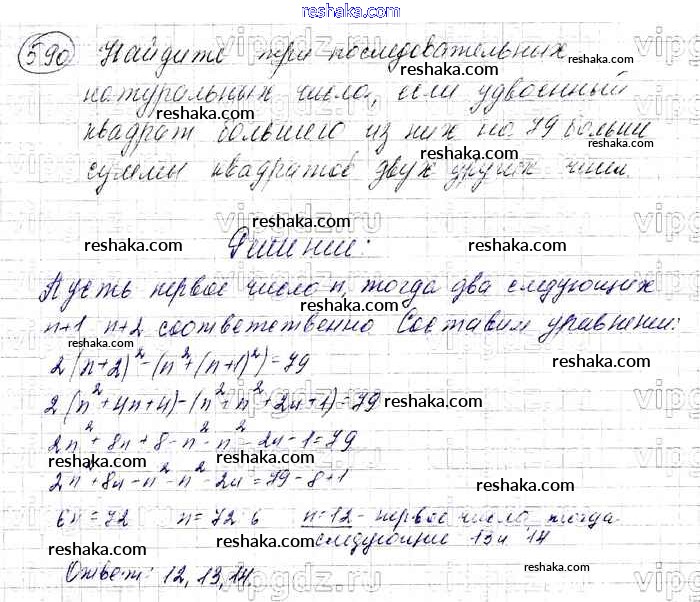 reshaka.com
590 Найдите три последовательных
reshaka.com reshaka.com
натуральных числа, если удвоенный
reshaka.com
квадрат большего из них на 79 больше
reshaka.com reshaka.com
суммы квадратов двух других чисел.
vipgdz.ru
reshaka.com
reshaka.com Решение: reshaka.com
Пусть первое число n, тогда два следующих
reshaka.com
n+1 n+2 соответственно Составим уравнение:
reshaka.com
2(n+2)²-(n²+(n+1)²)=79
reshaka.com
2(n²+4n+4)-(n²+n²+2n+1)=79 reshaka.com
2n²+8n+8-n²-n²-2n-1=79
reshaka.com reshaka.com
2n²+8n-n²-n²-2n=79-8+1
reshaka.com
6n=72 n=72:6 n=12- первое число, тогда
reshaka.com следующие 13 и 14
Ответ: 12, 13, 14
reshaka.com reshaka.com